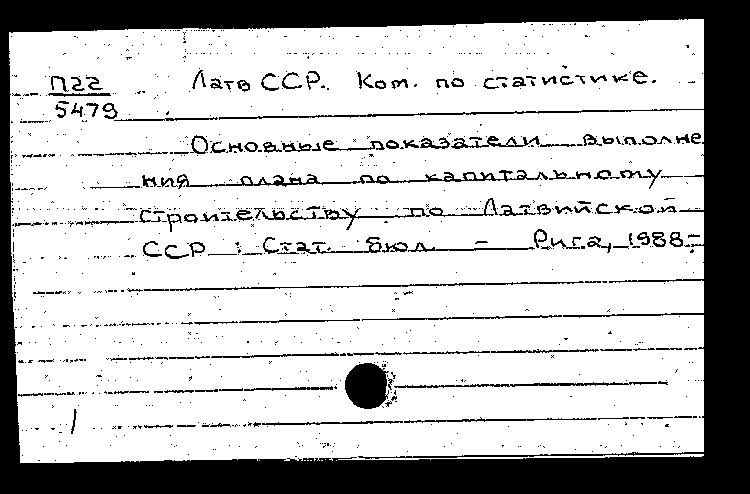 П22 Латв ССР. Ком. по статистике.
5479
Основные показатели выполне
ния плана по капитальному
строительству по Латвийской
ССР : Стат. бюл. - Рига, 1988-